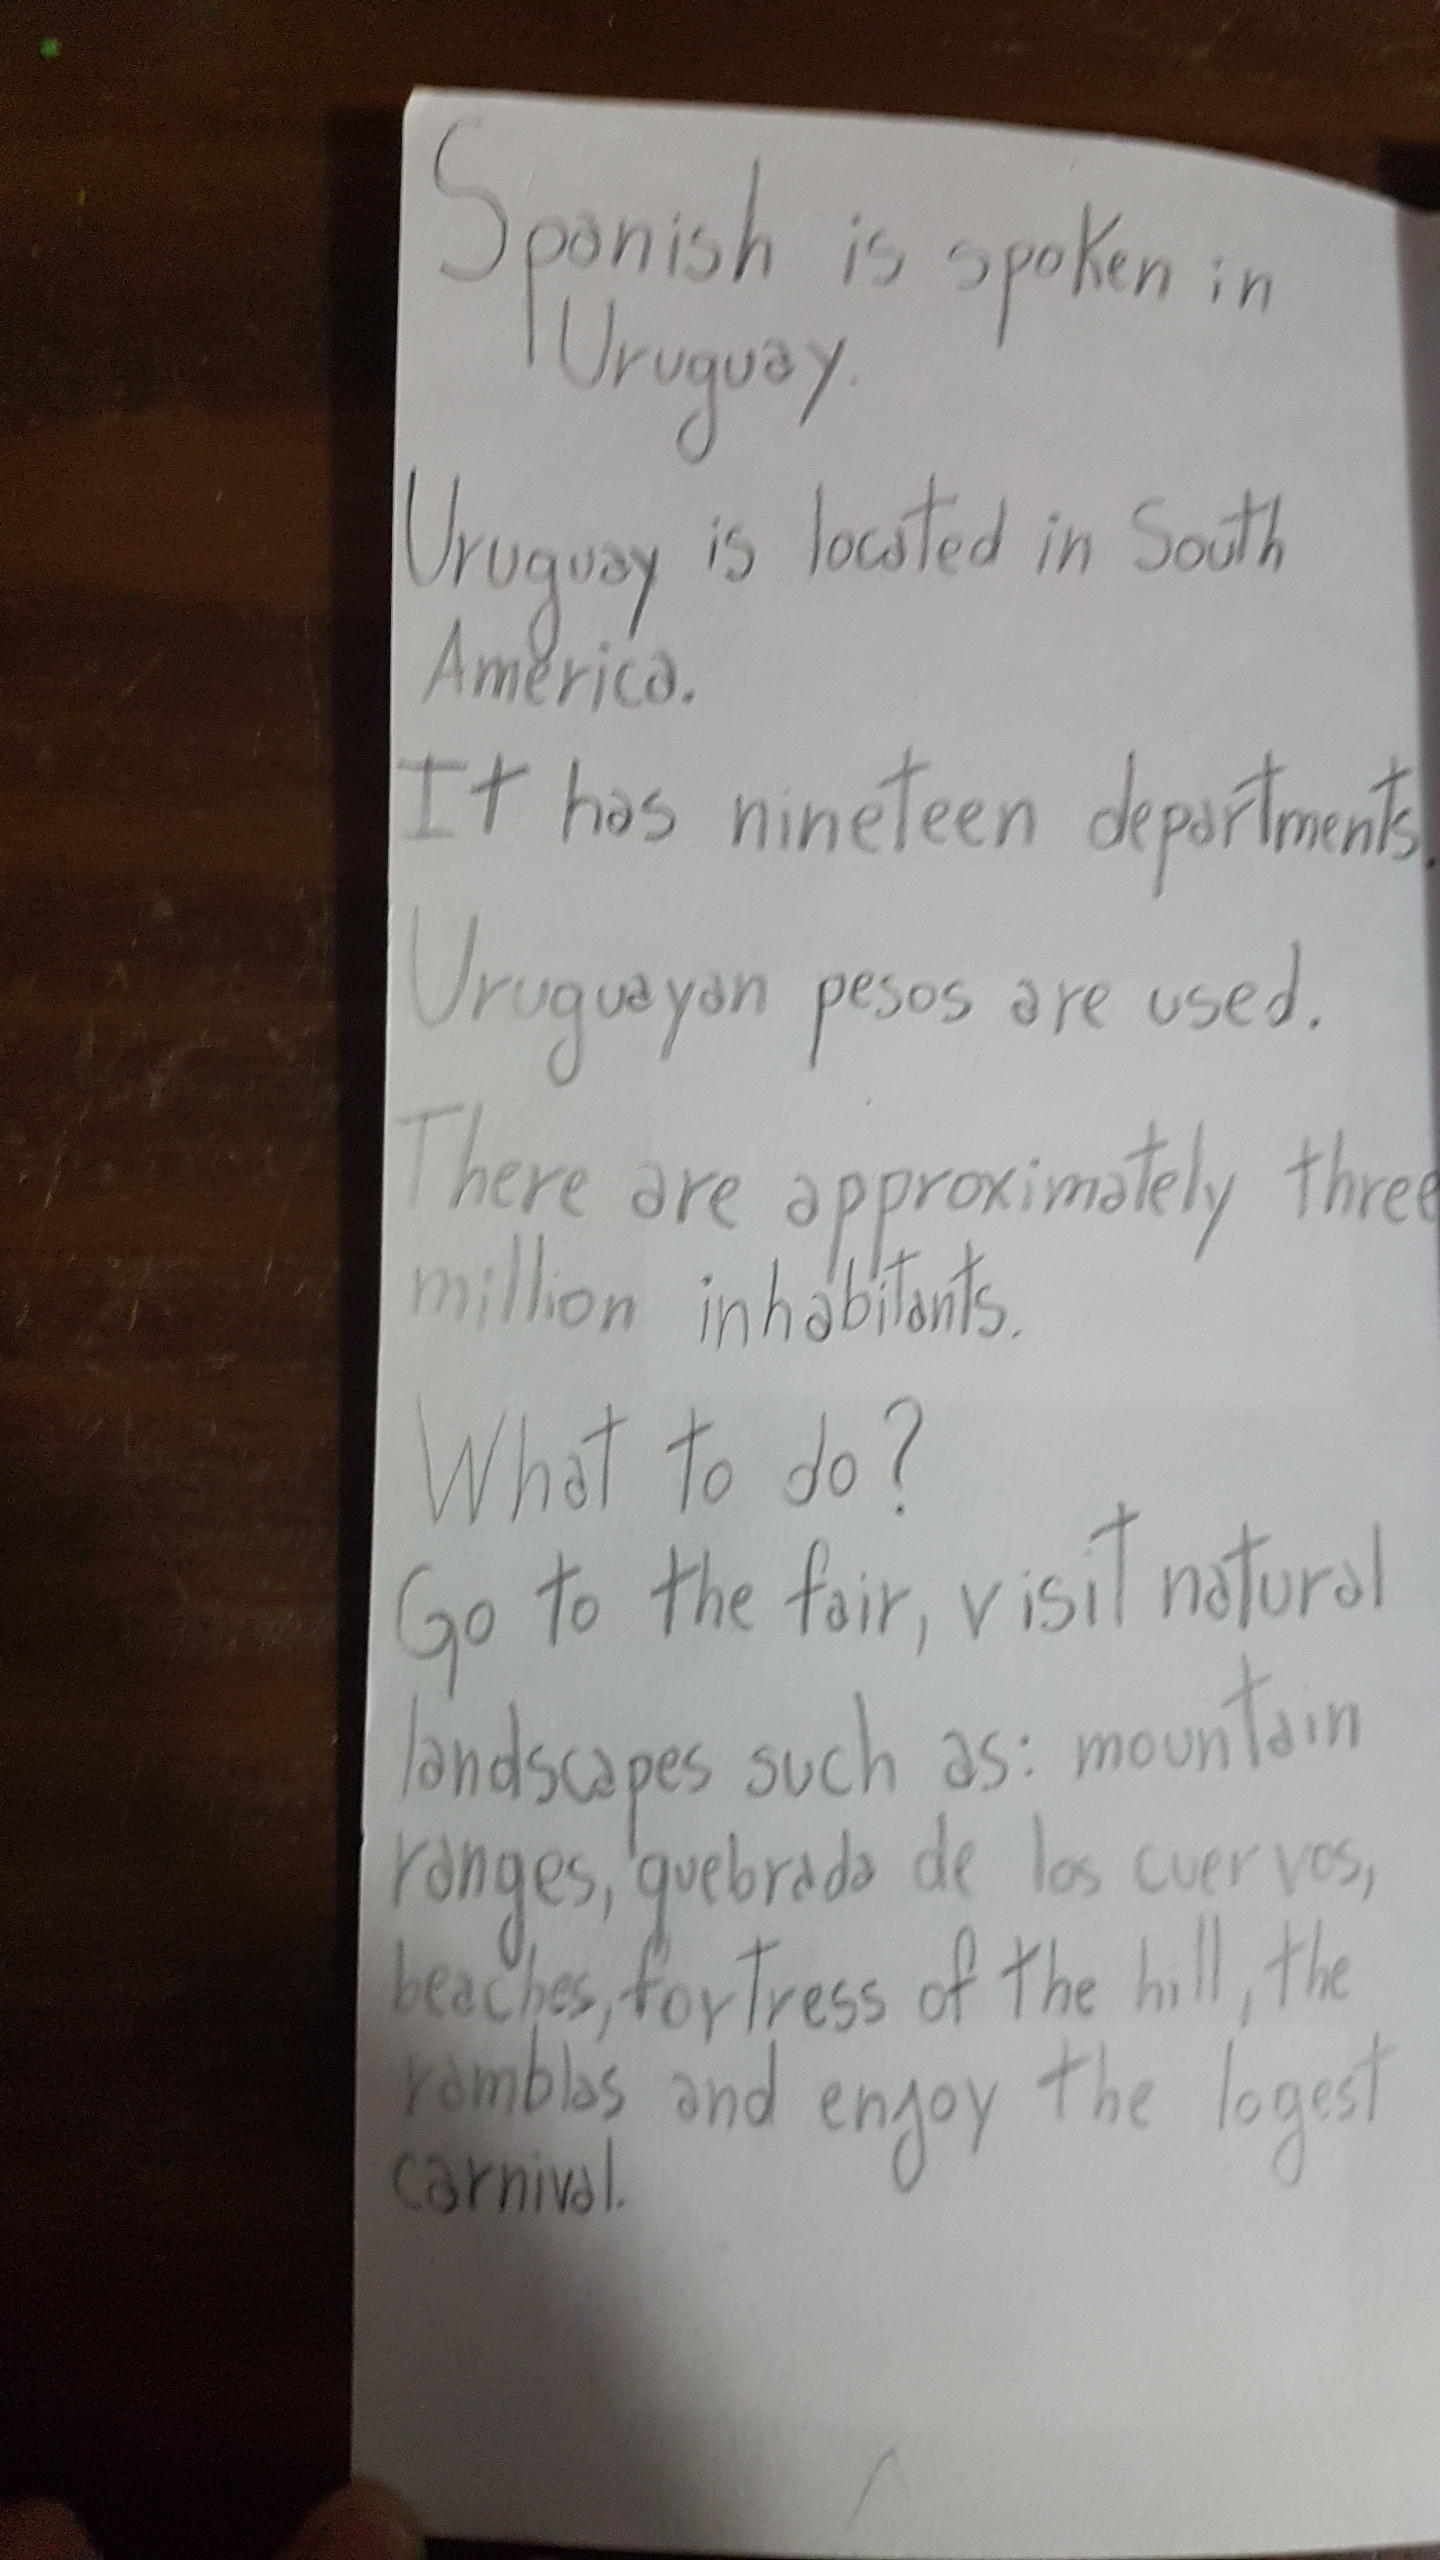 Spanish is spoken in
Uruguay.
Uruguay is located in South
America.
It has nineteen departments.
Uruguayan pesos are used.
There are approximately three
million inhabitants.
What to do?
Go to the fair, visit natural
landscapes such as: mountain
ranges, quebrada de los cuervos,
beaches, fortress of the hill, the
ramblas and enjoy the logest
carnival.